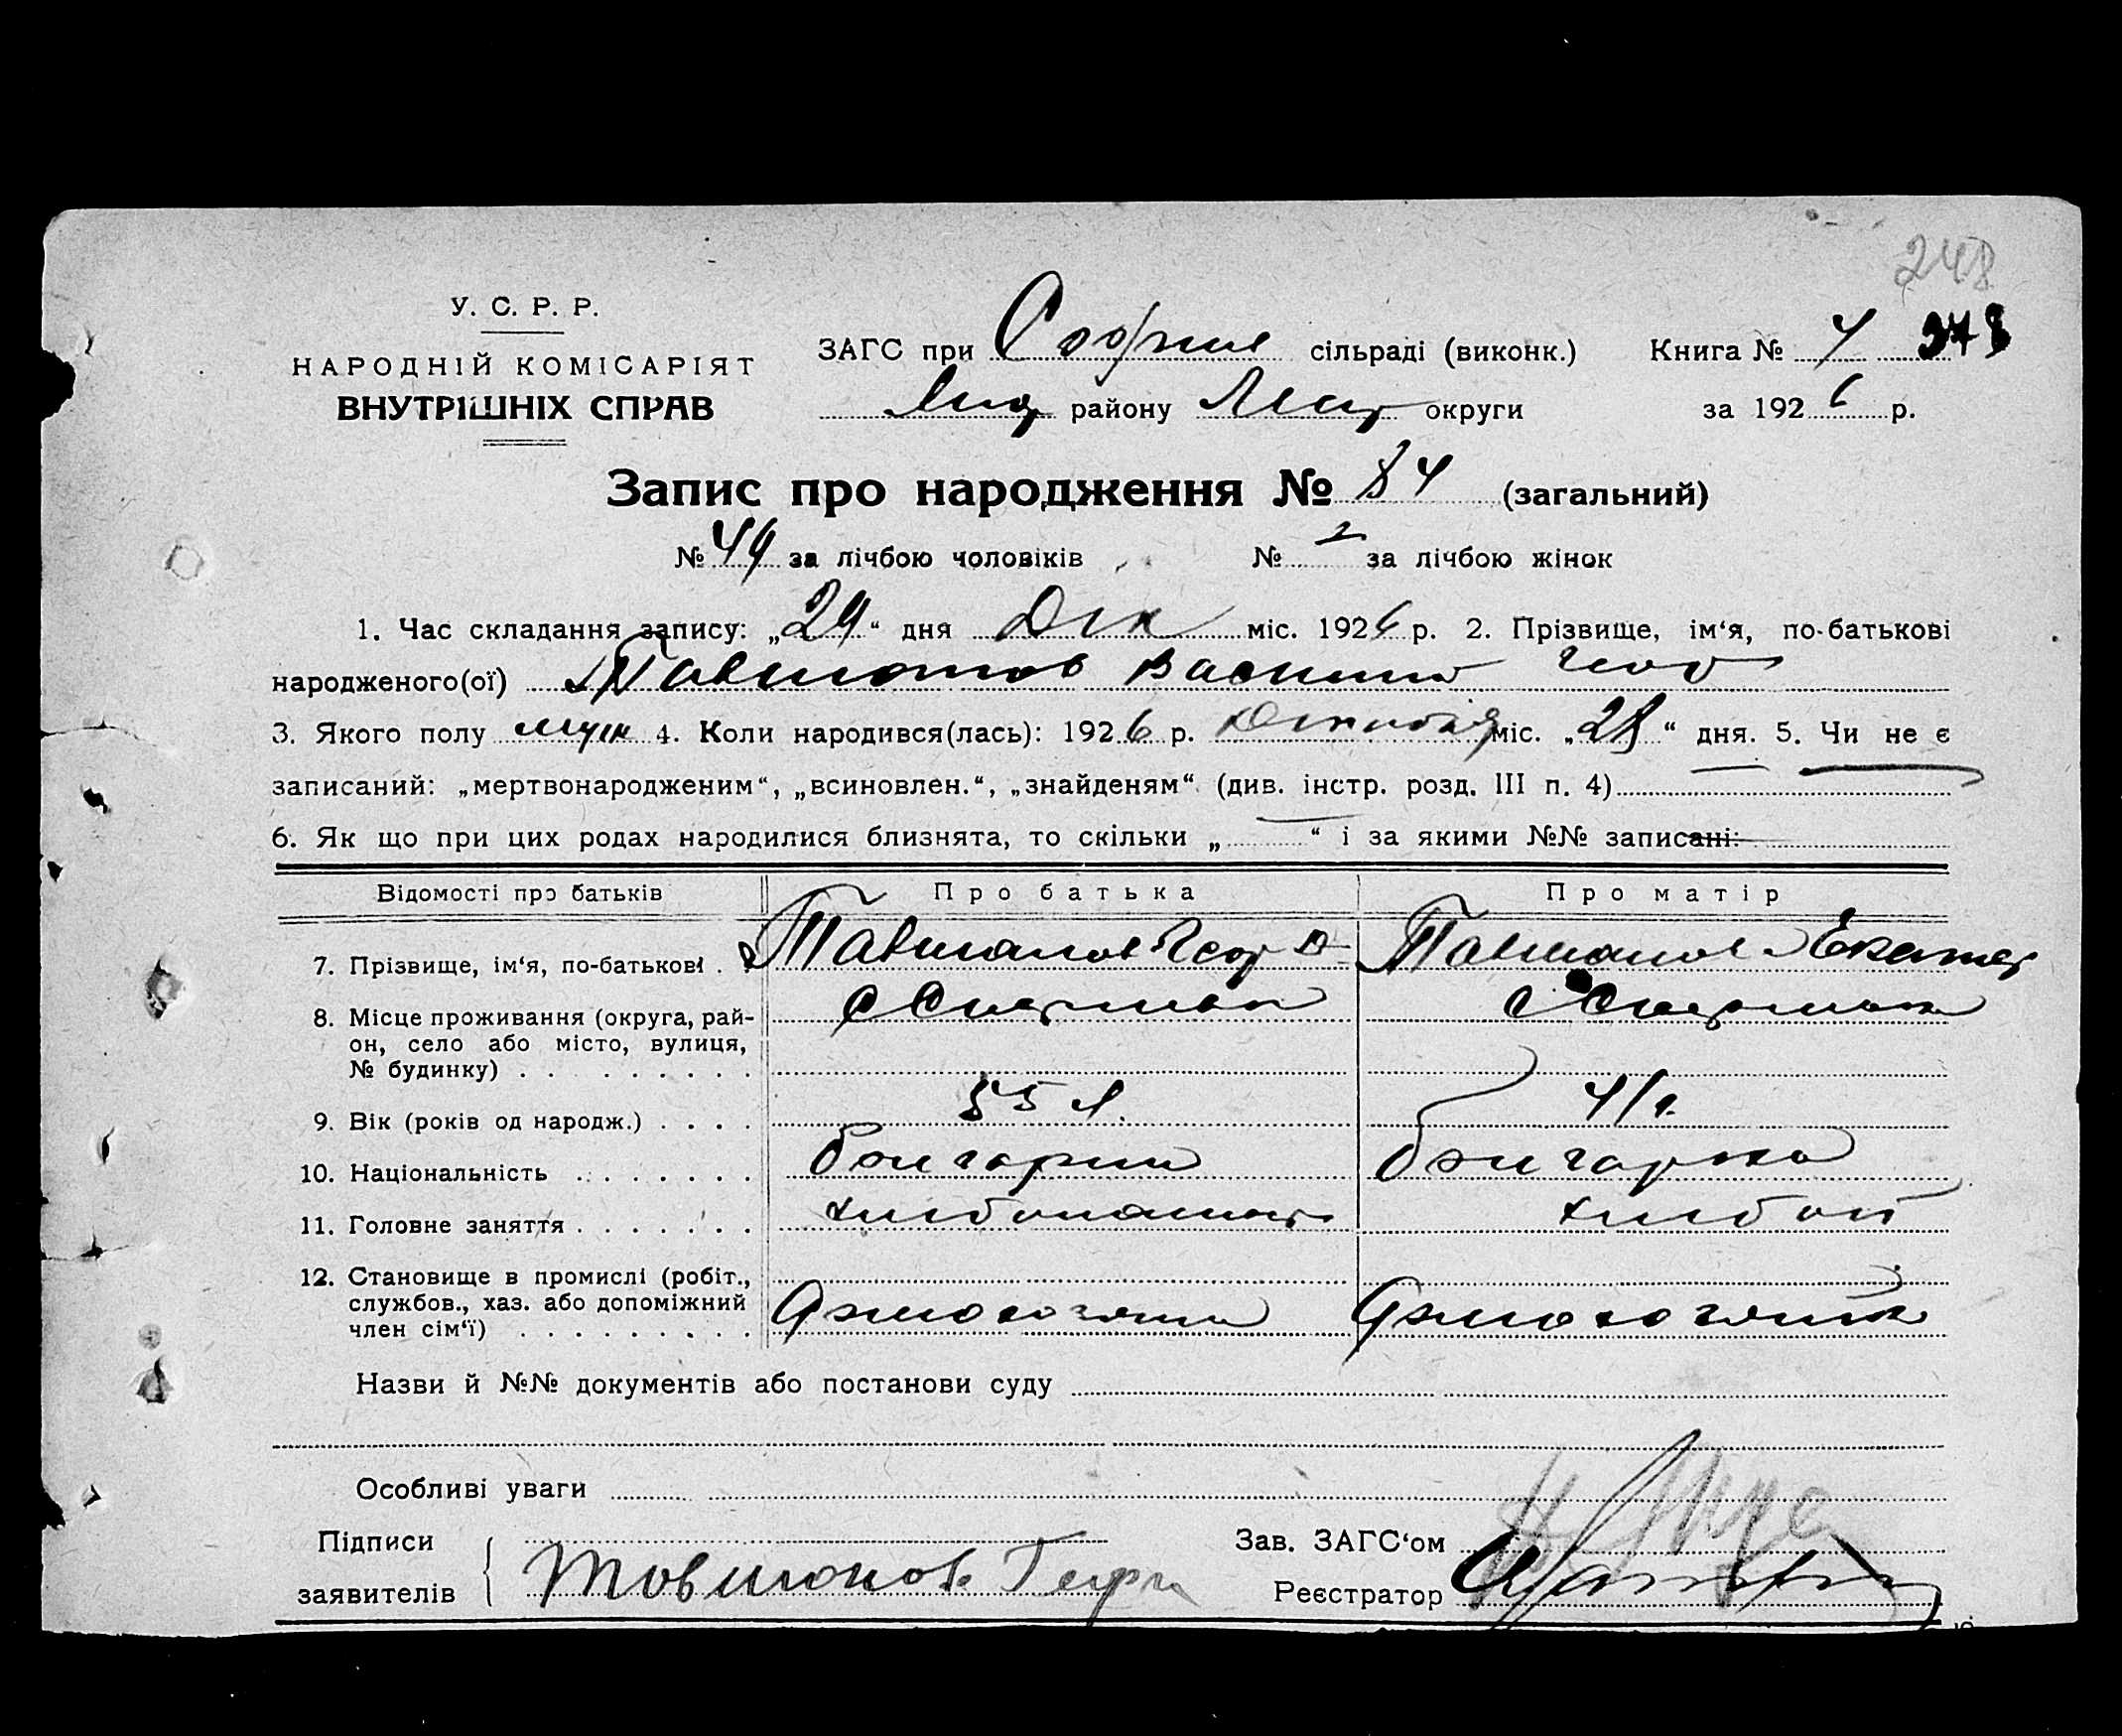 248
У. С. Р. Р.
НАРОДНІЙ КОМІСАРІЯТ
ВНУТРІШНІХ СПРАВ
ЗАГС при Софиев сільраді (виконк.) Книга № 4 378
району округи за 1926 р.
Запис про народження № 84 (загальний)
№ 44 за лічбою чоловіків № за лічбою жінок
1. Час складання запису: „29“ дня Дек міс. 1926 р. 2. Прізвище, ім‘я, по-батькові
народженого(ої) Тавшанов Василий Геор
3. Якого полу муж 4. Коли народився(лась): 1926 р. Декабря міс. „28“ дня. 5. Чи не є
записаний: „мертвонародженим“, „всиновлен.“, „знайденям“ (див. інстр. розд. III п. 4)
6. Як що при цих родах народилися близнята, то скільки „ “ і за якими №№ записані:
Відомості про батьків Про батька Про матір
7. Прізвище, ім‘я, по-батькові . Тавшанов Геор Д Тавшанов Екатер
8. Місце проживання (округа, рай-
он, село або місто, вулиця,
№ будинку)
9. Вік (років од народж.) . . . . 55 л. 41 л.
10. Національність . . . . . . . болгарин болгарка
11. Головне заняття . . . . . . . хлебопашец хлебоп
12. Становище в промислі (робіт.,
службов., хаз. або допоміжний
член сім‘ї) . . . . . . . . .
Назви й №№ документів або постанови суду
Особливі уваги
Підписи
заявителів Товшонов Геор
Зав. ЗАГС‘ом
Реєстратор